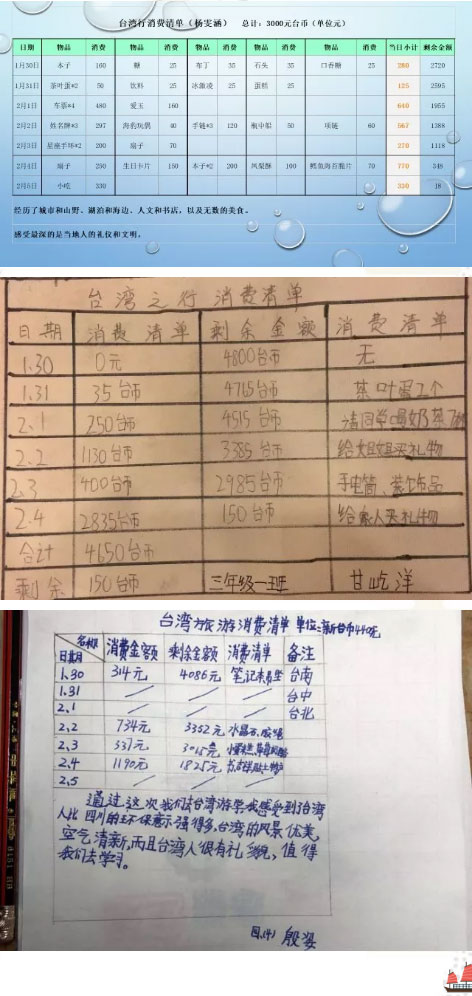 台湾行消费清单（杨雯涵） 总计：3000元台币（单位元）
日期 物品 消费 物品 消费 物品 消费 物品 消费 物品 消费 当日小计 剩余金额
1月30日 本子 160 糖 25 布丁 35 石头 35 口香糖 25 280 2720
1月31日 茶叶蛋*2 50 饮料 25 冰激凌 25 蛋糕 25 125 2595
2月1日 车票*4 480 爱玉 160 640 1955
2月2日 姓名牌*3 297 海豹玩偶 40 手链*3 120 瓶中船 50 项链 60 567 1388
2月3日 星座手环*2 200 扇子 70 270 1118
2月4日 扇子 250 生日卡片 150 本子*2 200 凤梨酥 100 鳕鱼海苔脆片 70 770 348
2月5日 小吃 330 330 18
经历了城市和山野、湖泊和海边、人文和书店，以及无数的美食。
感受最深的是当地人的礼仪和文明。
台湾之行消费清单
日期 消费清单 剩余金额 消费清单
1.30 0元 4800台币 无
1.31 35台币 4765台币 茶叶蛋2个
2.1 250台币 4515台币 请同学喝奶茶
2.2 1130台币 3385台币 给姐姐买礼物
2.3 400台币 2985台币 手电筒、装饰品
2.4 2835台币 150台币 给家人买礼物
合计 4650台币
剩余 150台币 三年级一班 甘屹洋
台湾旅游消费清单 单位:新台币4400元
名称 日期 消费金额 剩余金额 消费清单 备注
1.30 314元 4086元 笔记本 台南
1.31 台中
2.1 台北
2.2 734元 3352元
2.3 337元 3015元
2.4 1190元 1825元
2.5
通过这次我们去台湾游学,我感受到台湾
人比四川的环保意识强得多,台湾的风景优美,
空气清新,而且台湾人很有礼貌,值得
我们去学习。
四.(4) 殷姿